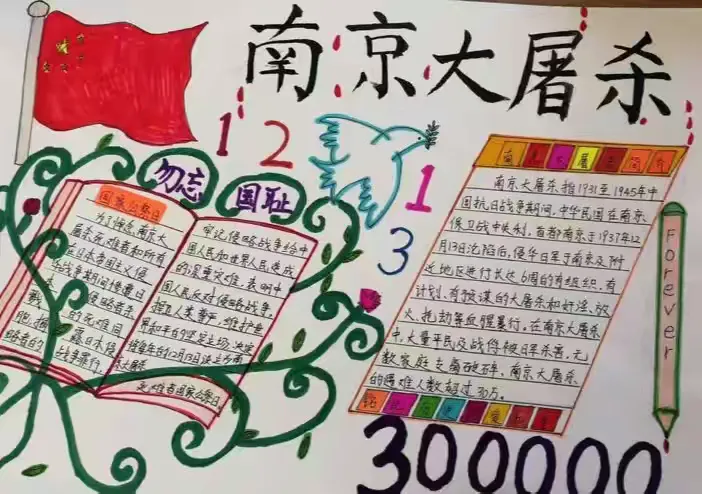 南京大屠杀
1
2
1
3
勿忘
国耻
国家公祭日
为了悼念南京大
屠杀死难者和所有
在日本帝国主义侵
战争期间惨遭日
侵略者杀
的死难同
露日本侵
战争罪行
牢记侵略战争给中
国人民和世界人民造成
的深重灾难,表明中
国人民反对侵略战争,
捍卫人类尊严,维护世
界和平的坚定立场,决定
将每年的12月13日设立为南
京大屠杀
死难者国家公祭日。
南京大屠杀指1931至1945年中
国抗日战争期间,中华民国在南京
保卫战中失利,首都南京于1937年12
月13日沦陷后,侵华日军于南京及附
近地区进行长达6周的有组织、有
计划、有预谋的大屠杀和奸淫、放
火、抢劫等血腥暴行。在南京大屠杀
中,大量平民及战俘被日军杀害,无
数家庭支离破碎,南京大屠杀
的遇难人数超过30万。
铭记历史
Forever
300000